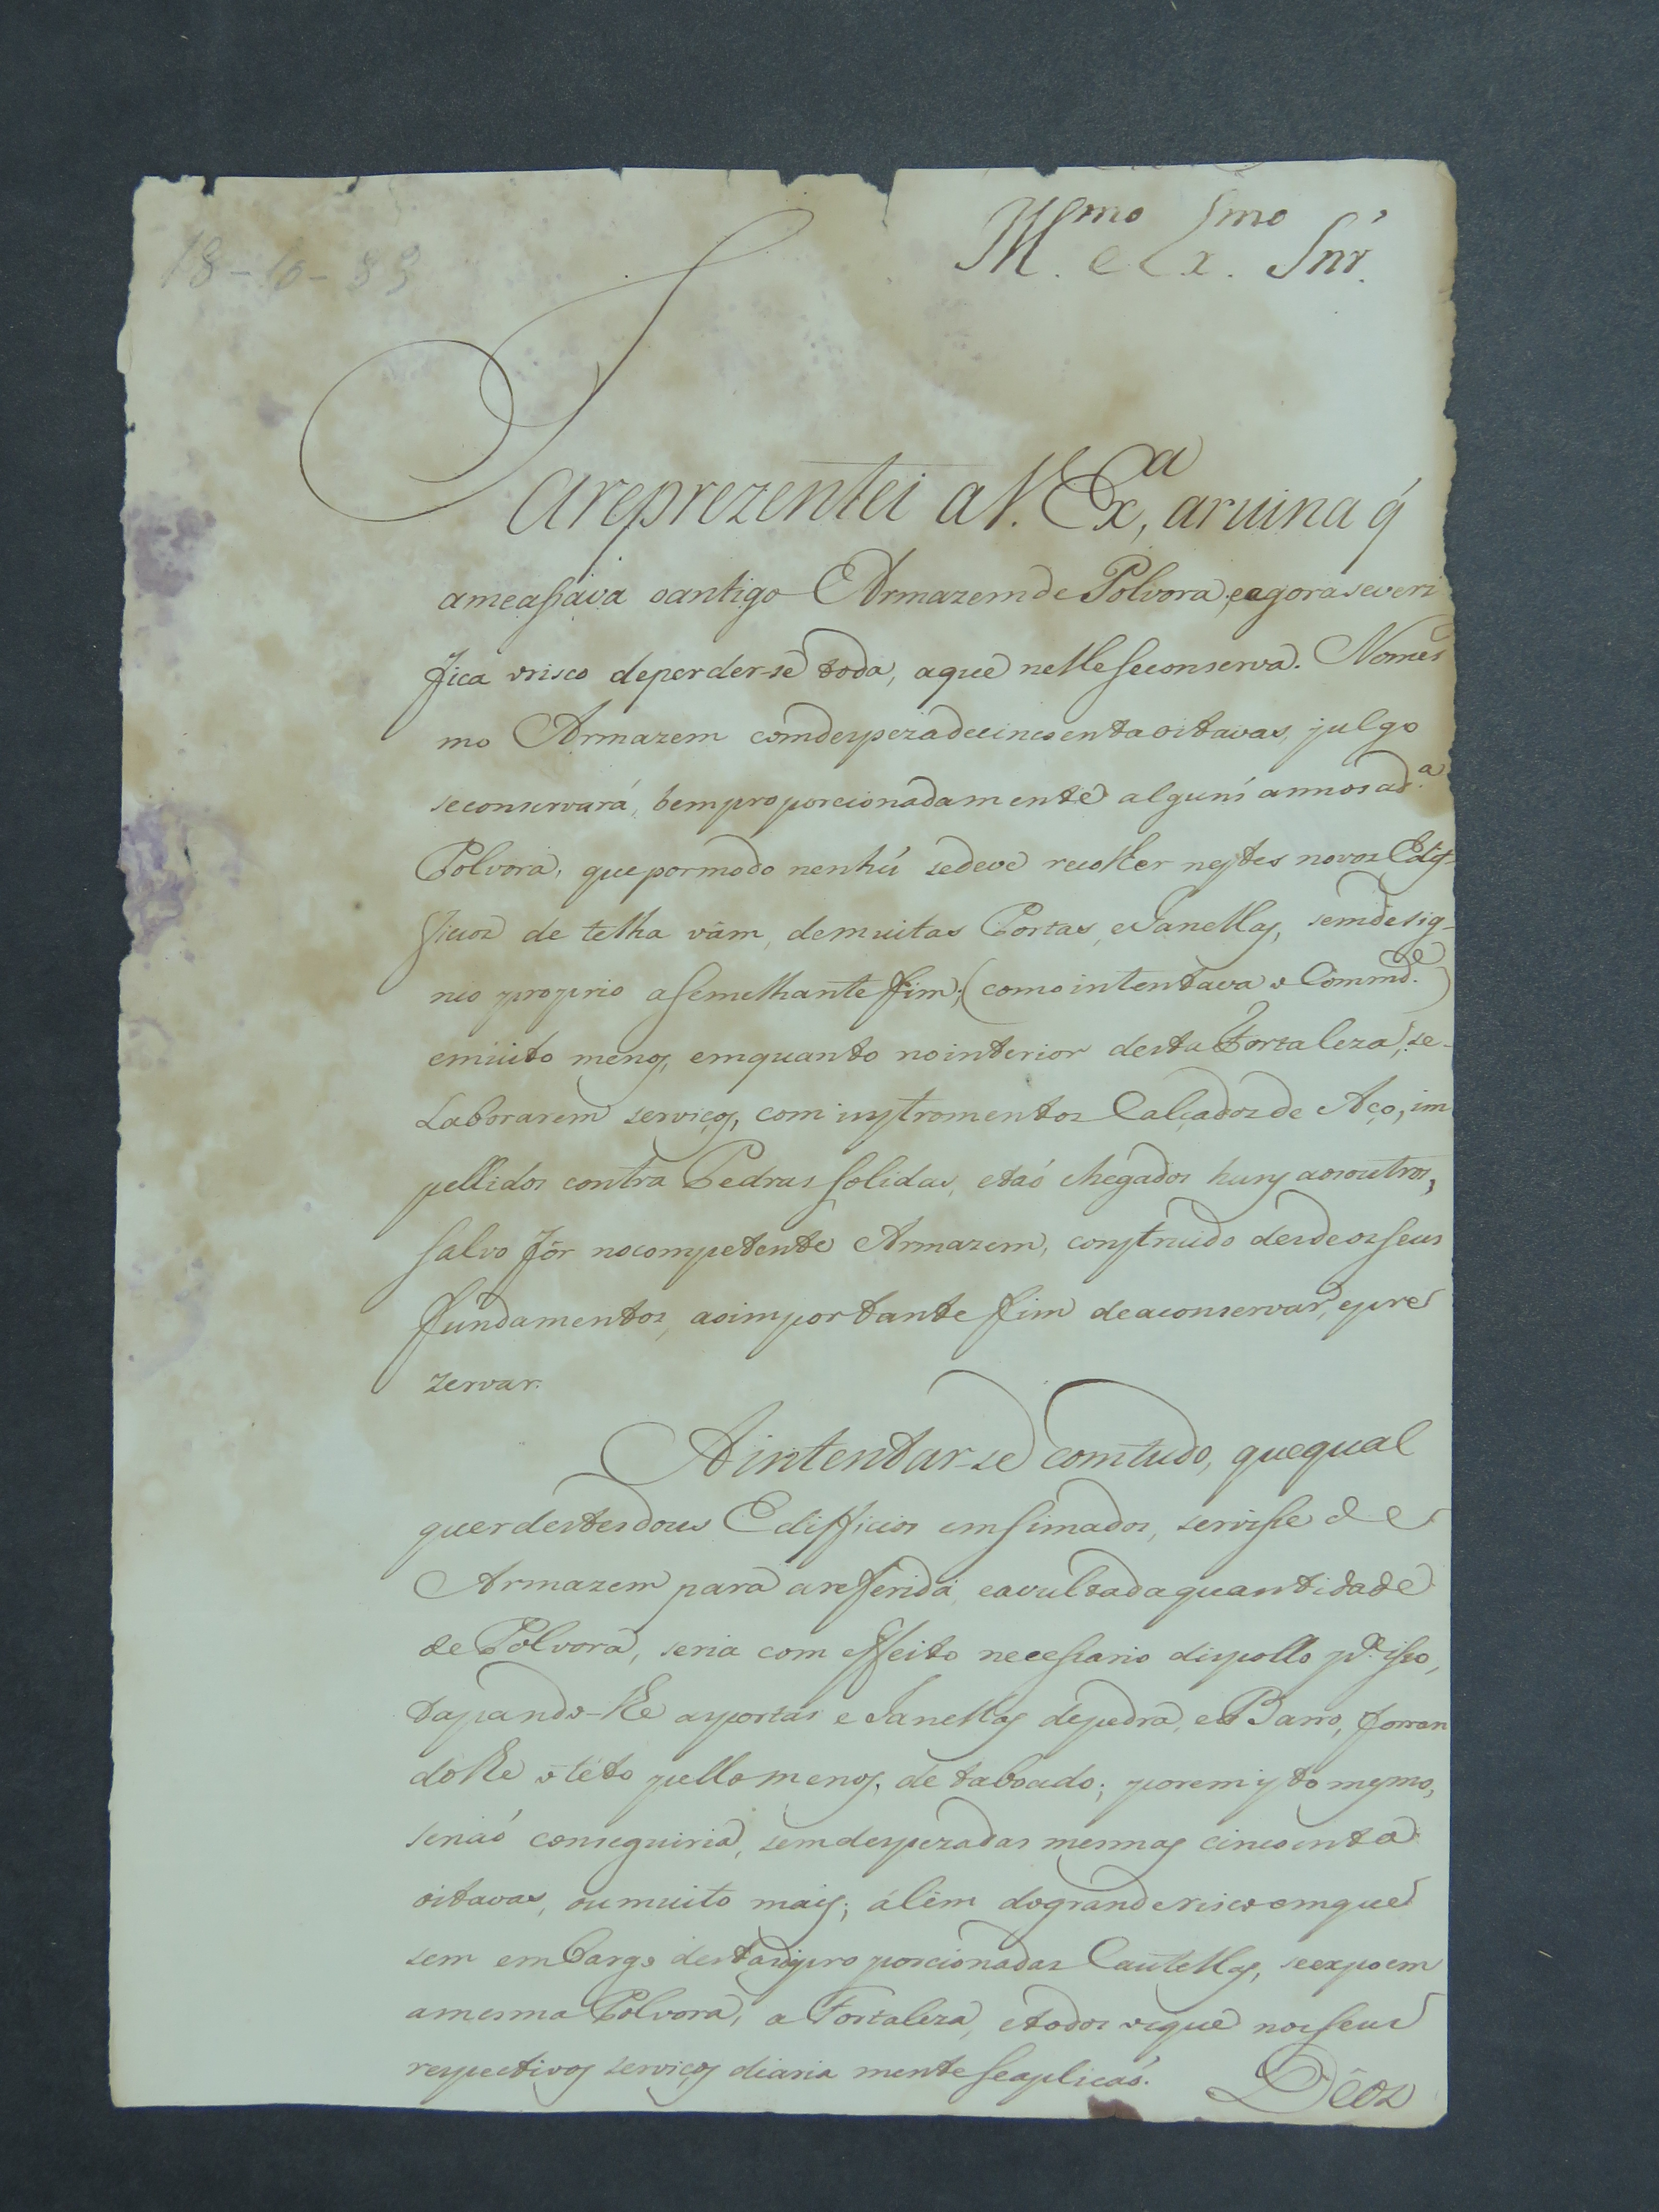 Ill.mo e Ex.mo Snr.
18-10-89
Ja reprezentei a V. Ex.a, a ruina q̃
ameassava o antigo Armazem de Polvora, e agora se veri
fica o risco de perder-se toda, a que nelle se conserva. No mes
mo Armazem com despeza de cincoenta oitavas, julgo
se conservará, bem proporcionadamente alguns annos a d.a
Polvora, que por modo nenhú se deve recolher nestes novos Edif-
ficios de telha vãm, de muitas Portas, e Janellas, sem desig-
nio proprio a semelhante fim; (como intentava o Commd.e)
e muito menos, em quanto no interior desta Fortaleza, se-
Laborarem serviços, com instromentos Calcados de Aço, im
pellidos contra Pedras solidas, e taõ chegados huns aos outros,
salvo fôr no competente Armazem, construido desde os seus
fundamentos, ao importante fim de a conservar, e pre
zervar.
A intentar-se com tudo, que qual
quer destes dous Edifficios emsimados, servisse de
Armazem para a referida, e avultada quantidade
de Polvora, seria com effeito necessario dispollo p.a isso,
tapando-lhe as portas e Janellas de pedra, e Barro, forran
dolhe o této pello menos, de taboado; porem isto mesmo,
se naõ conseguiria, sem despeza das mesmas cincoenta
oitavas, ou muito mais; álêm do grande risco em que
sem embargo destas proporcionadas Cautellas, se expoem
a mesma Polvora, a Fortaleza, e todos os que nos seus
respectivos serviços diaria mente se aplicaõ.
Dêos